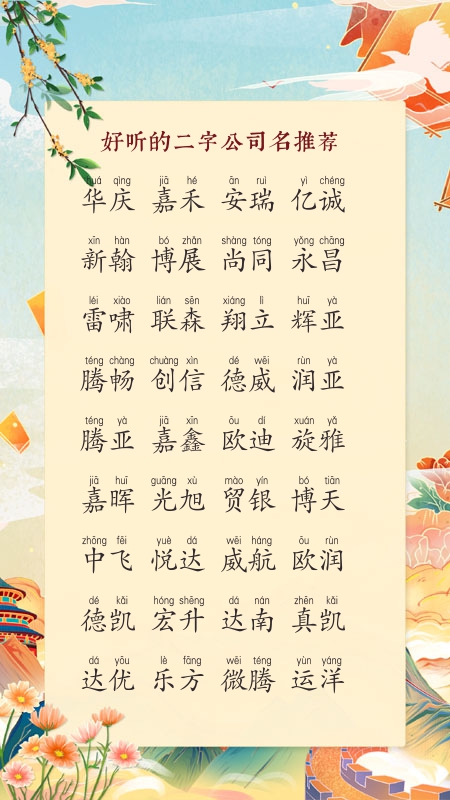 好听的二字公司名推荐
huá qìng jiā hé ān ruì yì chéng
华庆 嘉禾 安瑞 亿诚
xīn hàn bó zhǎn shàng tóng yǒng chāng
新翰 博展 尚同 永昌
léi xiào lián sēn xiáng lì huī yà
雷啸 联森 翔立 辉亚
téng chàng chuàng xìn dé wēi rùn yà
腾畅 创信 德威 润亚
téng yà jiā xīn ōu dí xuán yǎ
腾亚 嘉鑫 欧迪 旋雅
jiā huī guāng xù mào yín bó tiān
嘉晖 光旭 贸银 博天
zhōng fēi yuè dá wēi háng ōu rùn
中飞 悦达 威航 欧润
dé kǎi hóng shēng dá nán zhēn kǎi
德凯 宏升 达南 真凯
dá yōu lè fāng wēi téng yùn yáng
达优 乐方 微腾 运洋